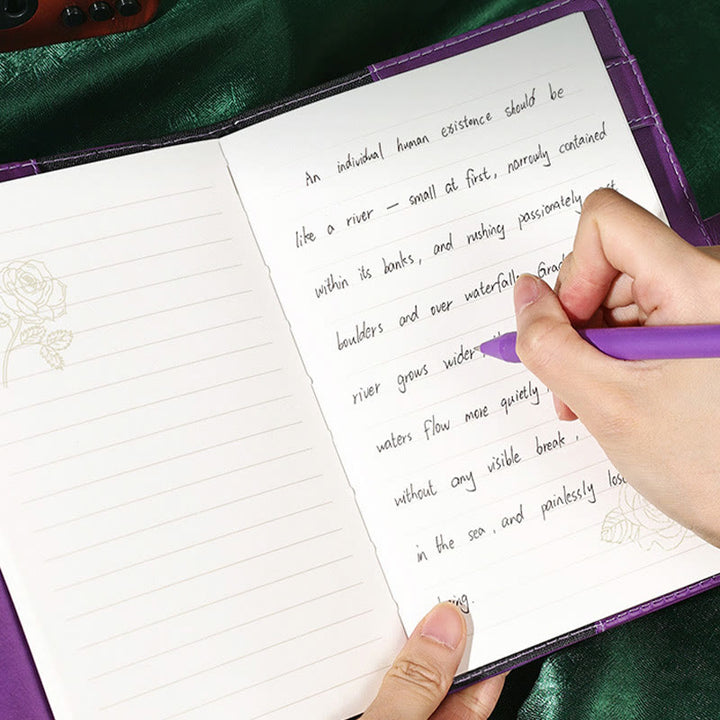 An individual human existence should be
like a river — small at first, narrowly contained
within its banks, and rushing passionately
boulders and over waterfalls
river grows wider
waters flow more quietly
without any visible break,
in the sea, and painlessly